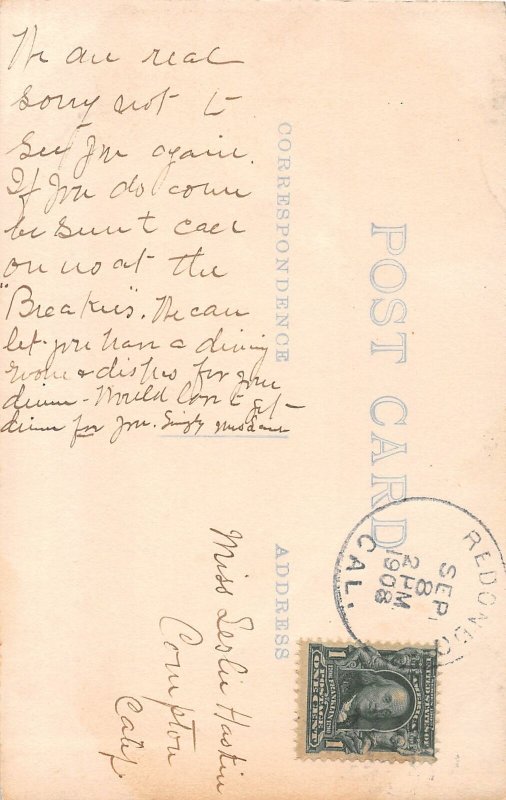 We are real
sorry not to
see you again.
If you do come
be sure & call
on us at the
"Breakers". We can
let you have a dining
room & dishes for your
dinner - Would love to get
dinner for you.
CORRESPONDENCE
POST CARD
ADDRESS
REDONDO
SEP
8
2 PM
1908
CAL.
Miss Leslie Haskin
Compton
Calif
1